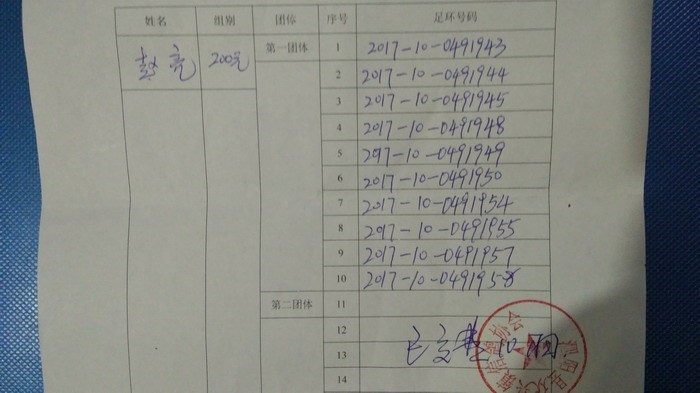 姓名 组别 团体 序号 足环号码
赵亮 200元 第一团体 1 2017-10-0491943
2 2017-10-0491944
3 2017-10-0491945
4 2017-10-0491948
5 2017-10-0491949
6 2017-10-0491950
7 2017-10-0491954
8 2017-10-0491955
9 2017-10-0491957
10 2017-10-0491958
第二团体 11
12
13
14